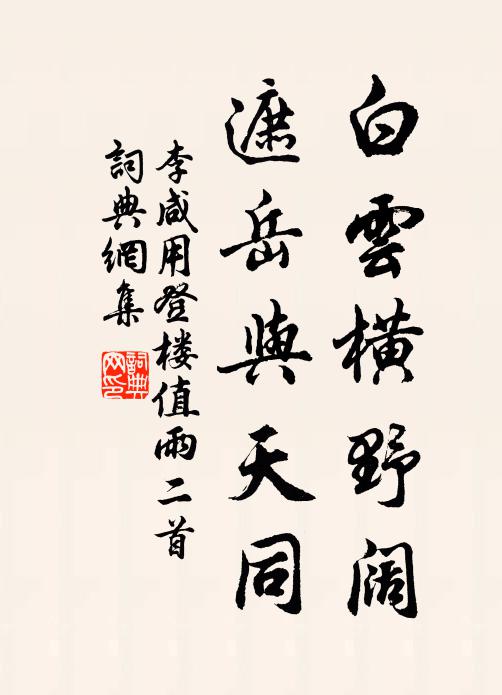 白雲橫野闊
遮岳與天同
李咸用登楼值雨二首
詞典網集
詞典網印